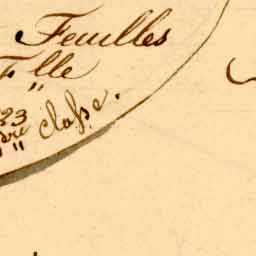 Feuilles
F lle
"
23
dre classe.
"